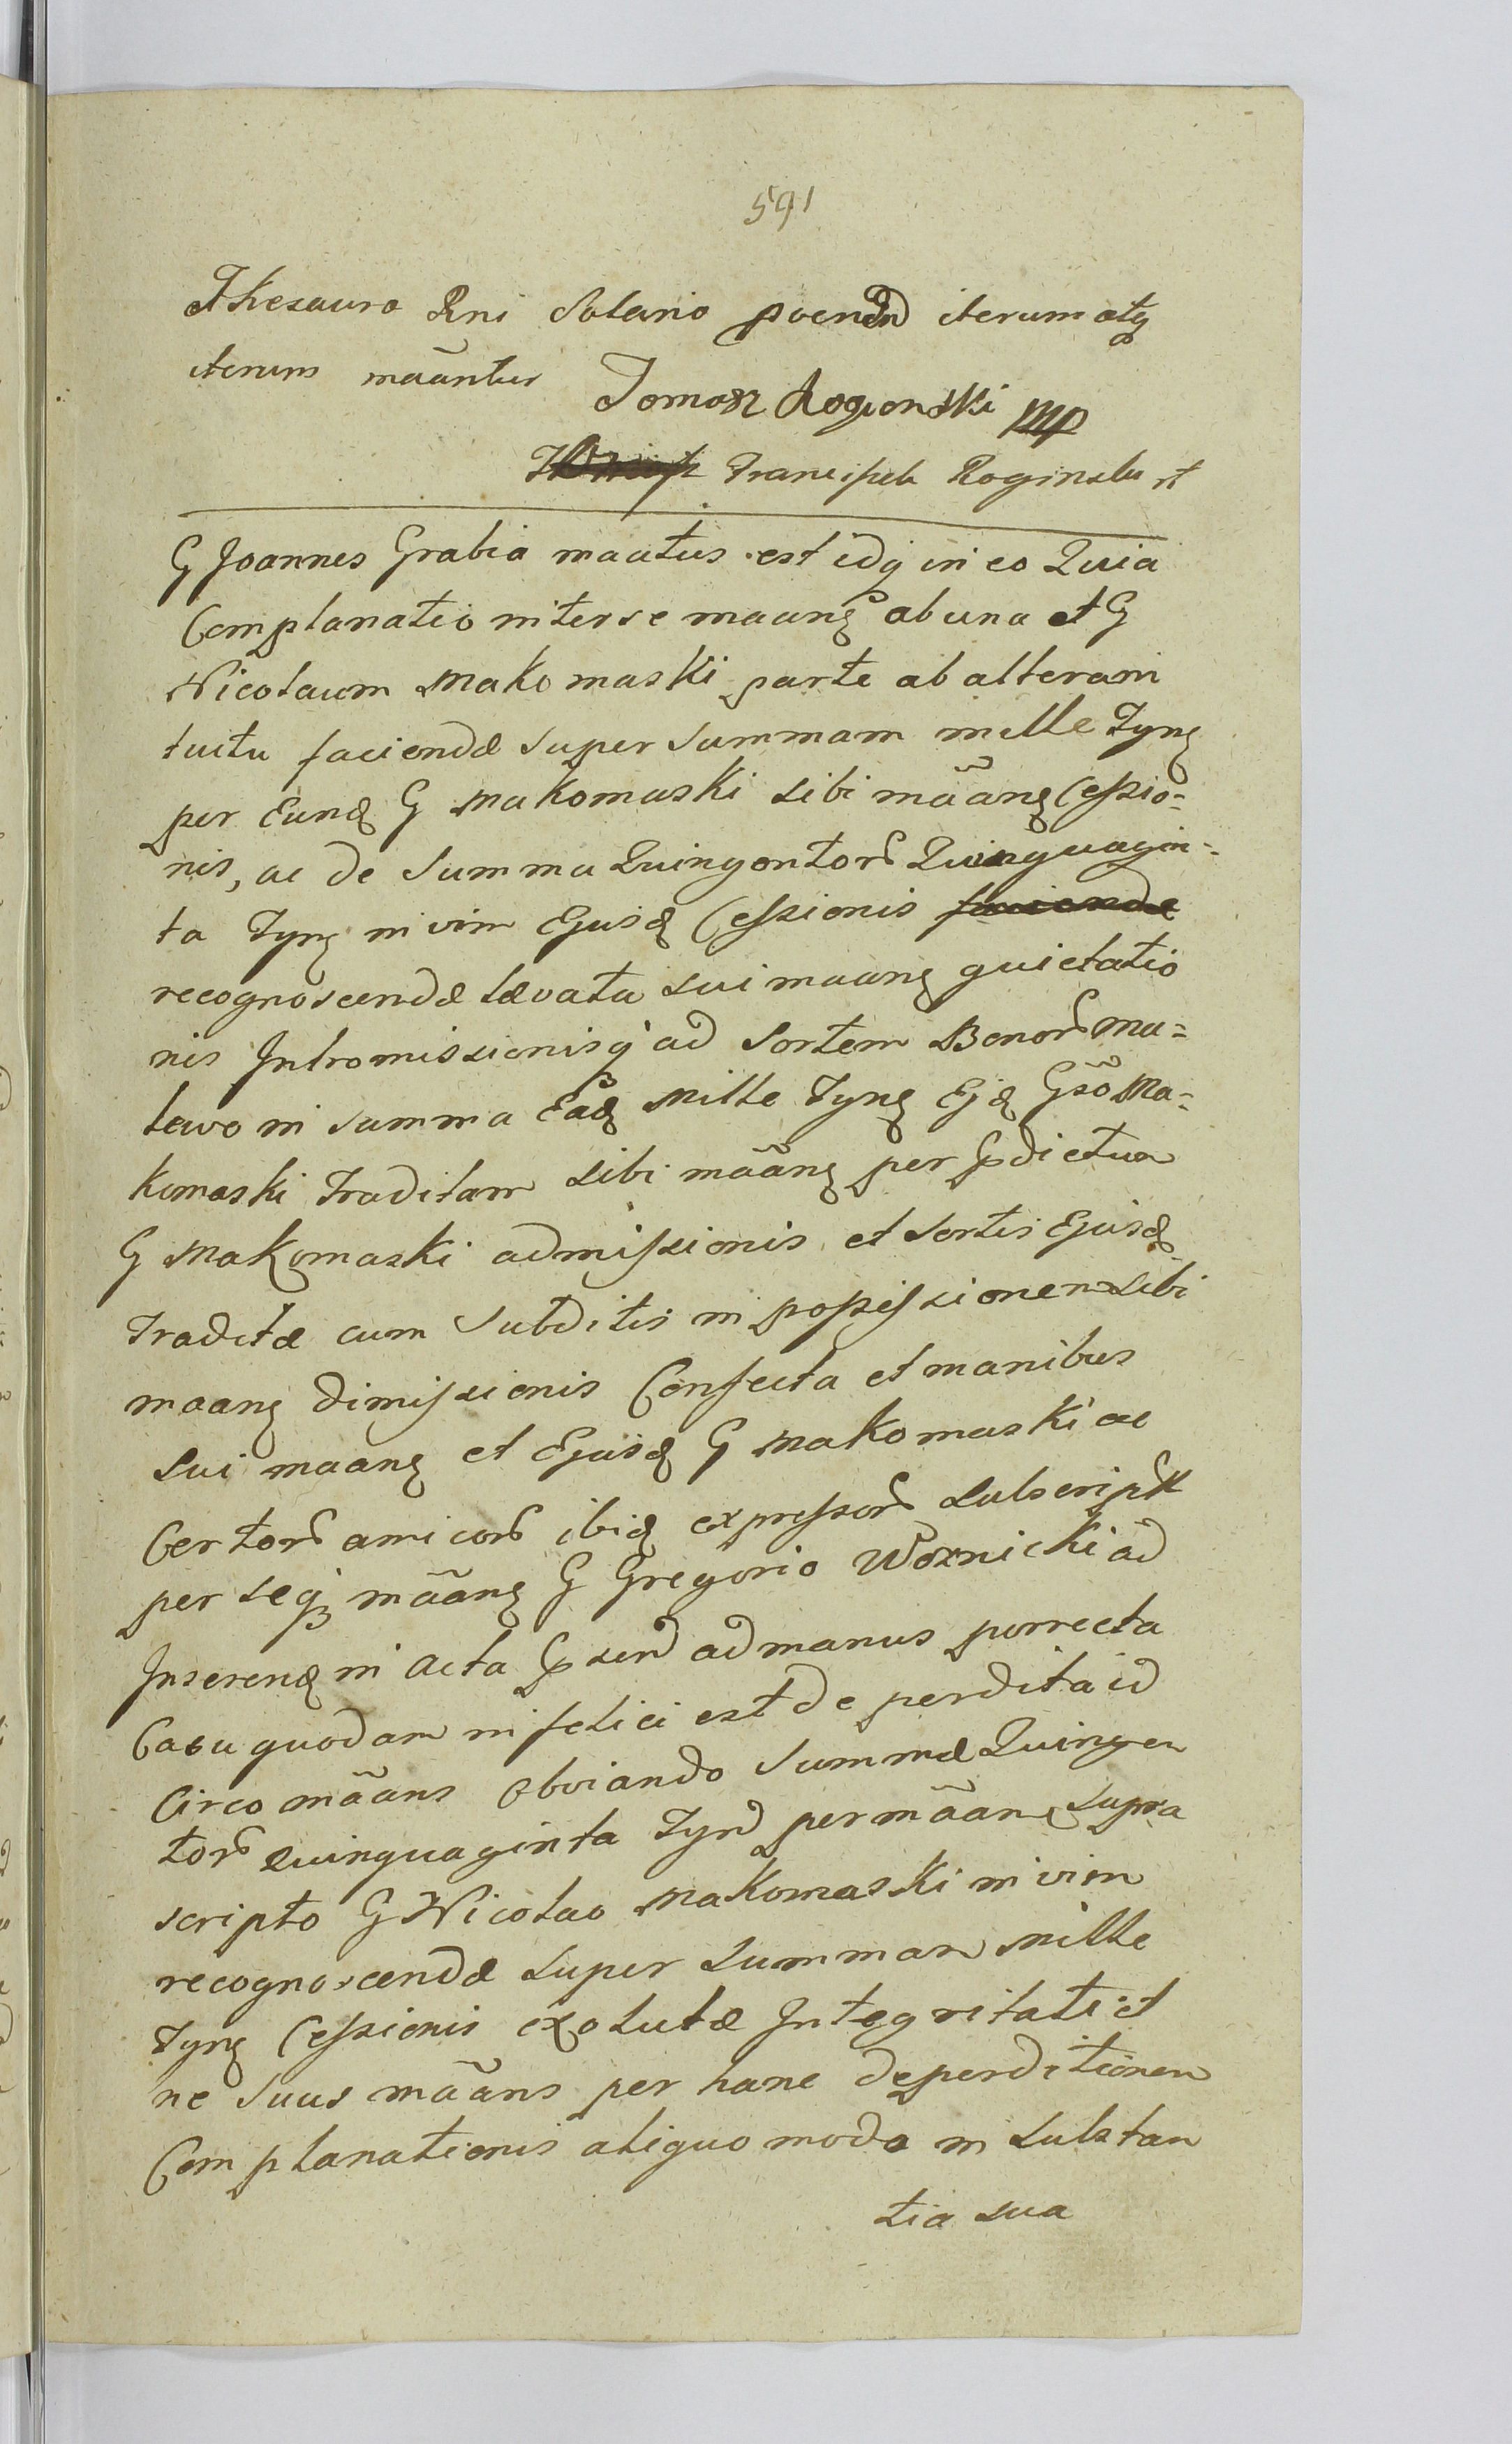 591
Thesauro Rni Solario poenđ iterum atq
iterum mãantur Tomasz Rogienski mp
Franciszek Roginsku st
G Joannes Grabia maatus est idq in eo Quia
Complanatio inter se maanɇ ab una et G
Nicolaum Makomaski parte ab altera in
tuitu faciendæ super summam mille Tynɇ
per Eunđ G Makomaski sibi mãanɇ Cessio=
nis, ac de Summa Quingentor̃ Quinquagin=
ta Tynɇ in vim Ejusđ Cessionis faciendæ
recognoscendæ levata sui maanɇ quietatio
nis Intromissionisq ad Sortem Bonor̃ Ma=
lewo in summa Eađ Mille Tynɇ Ejđ Gsõ Ma=
komaski Traditam sibi mãanɇ per pdictum
G Makomaski admissionis et Sortis Ejusđ
Traditæ cum Subditis in possessionem sibi
maanɇ dimissionis Confecta et manibus
sui maanɇ et Ejusđ G Makomaski ac
Certor̃ amicor̃ ibiđ expressor̃ subscript
per seq mãanɇ G Gregorio Woznicki ad
Inserenđ in Acta psenđ ad manus porrecta
Casu quodam infelici est deperdita id
Circo mãans obviando Summæ Quingen
tor̃ Quinquaginta Tynđ per mãanɇ supra
scripto G Nicolao Makomaski in vim
recognoscendæ super summam Mille
Tynɇ Cessionis exolutæ Integritati et
ne Suus mãans per hanc deperditionem
Complanationis aliquo modo in substan
tia sua